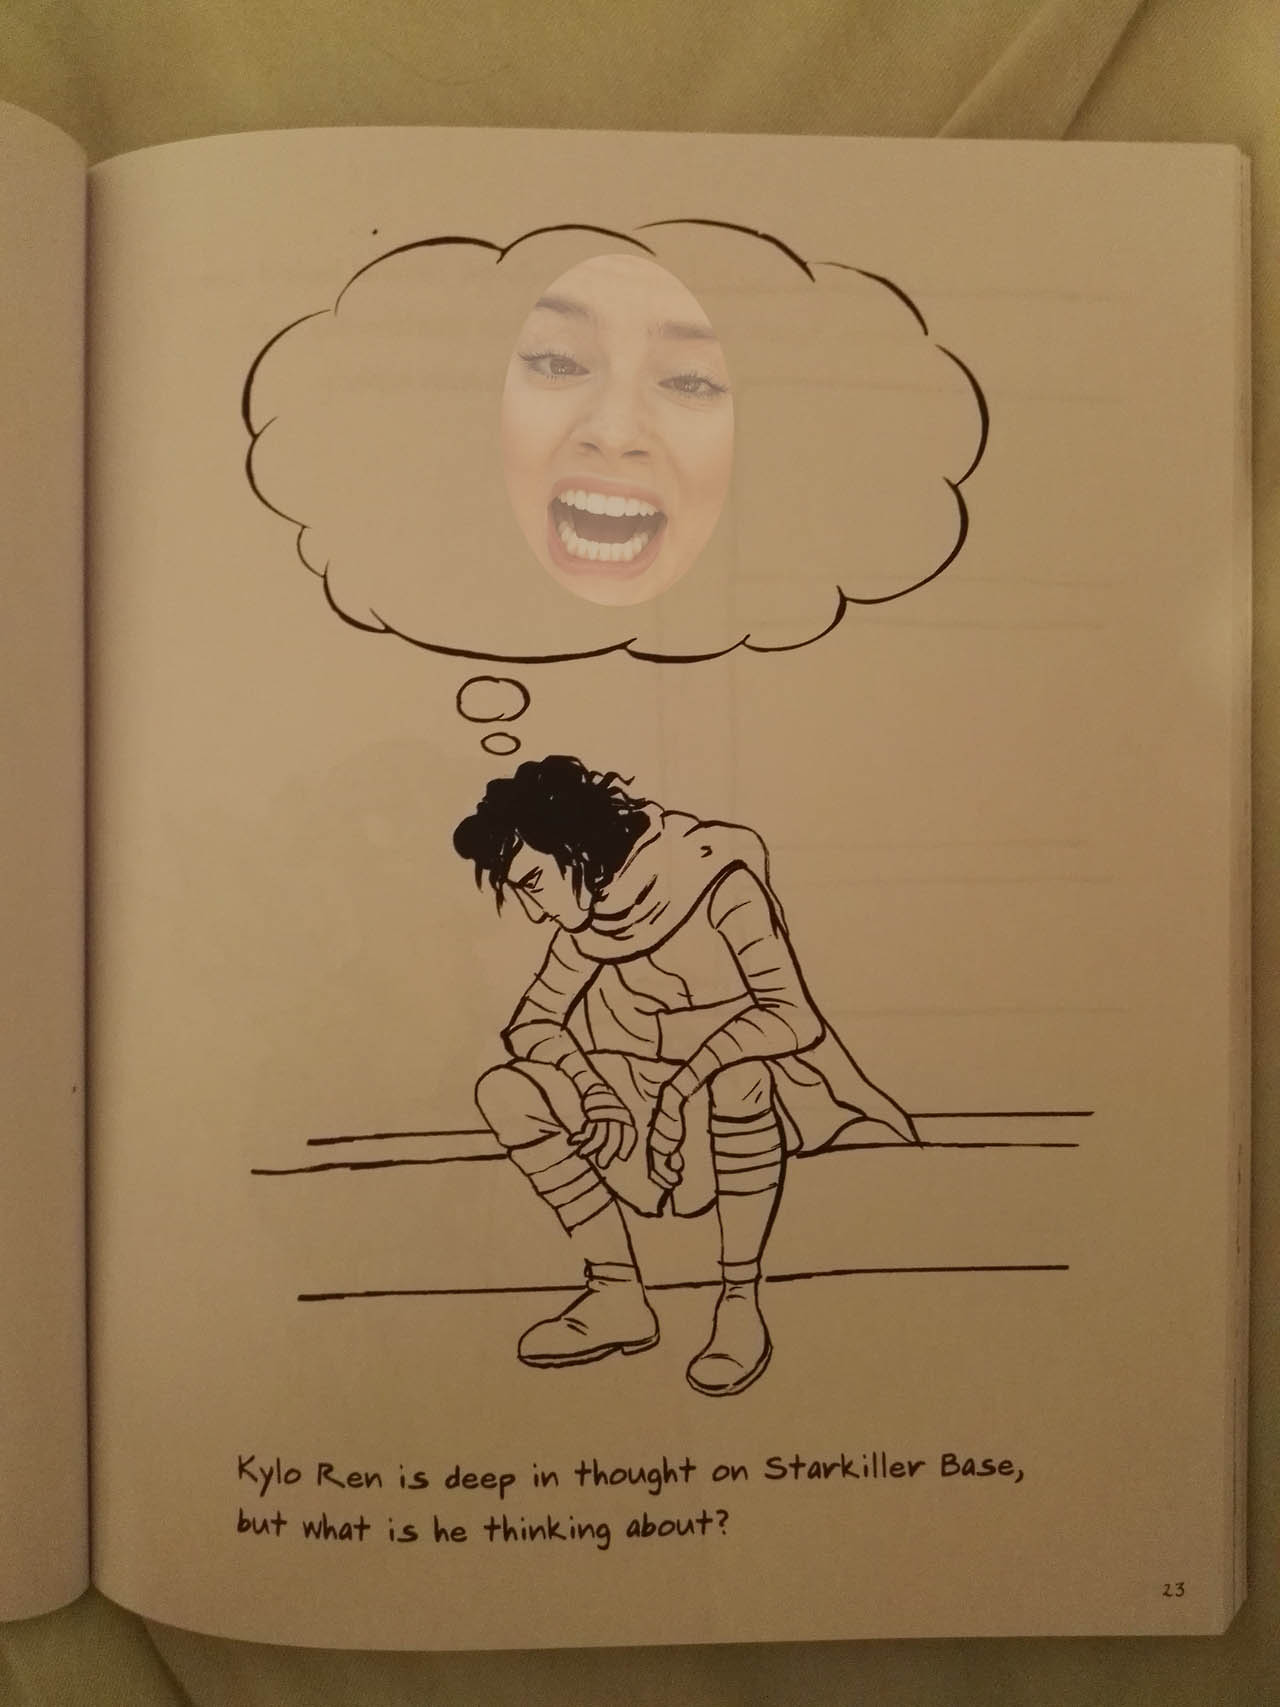 Kylo Ren is deep in thought on Starkiller Base,
but what is he thinking about?
23